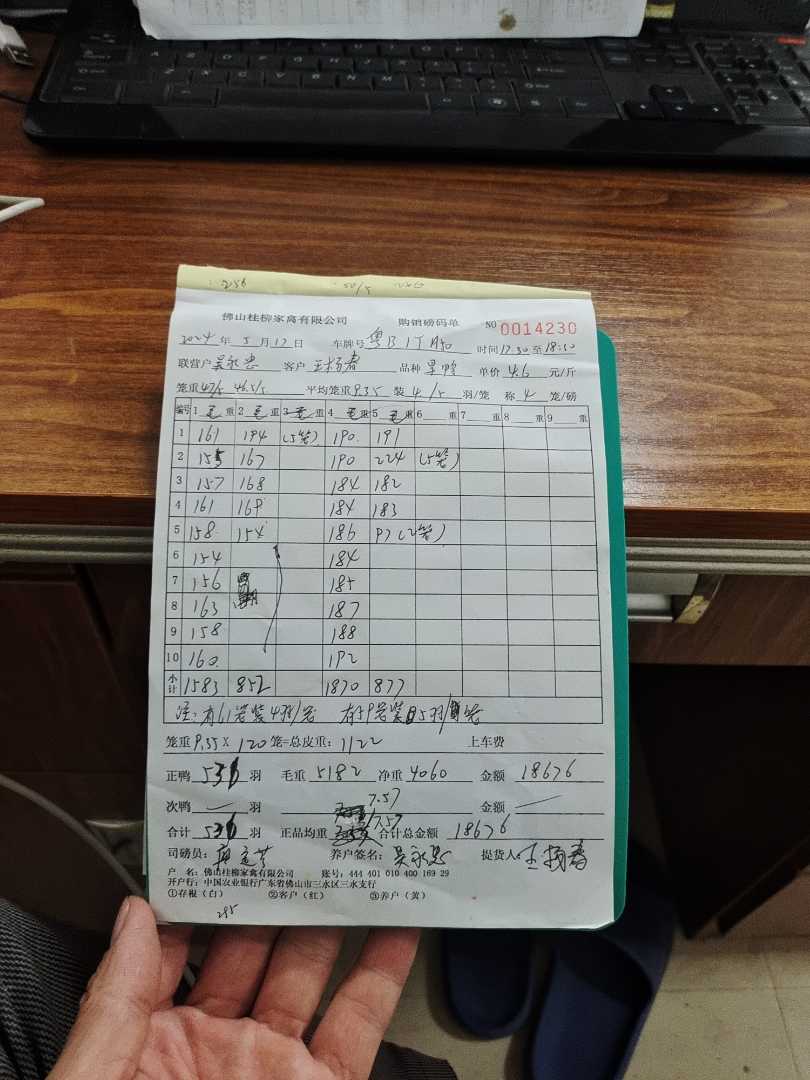 佛山桂柳家禽有限公司 购销磅码单 NO 0014230
2024 年 5 月 17 日 车牌号 粤B 时间 17:30 至 18:30
联营户 吴永忠 客户 王杨春 品种 单价 4.6 元/斤
笼重 47/5 46.5/5 平均笼重 9.35 装 4/5 羽/笼 称 4 笼/磅
编号 1 毛 重 2 毛 重 3 毛 重 4 毛 重 5 毛 重 6 重 7 重 8 重 9 重
1 161 194 (5笼) 190 191
2 155 167 190 224 (5笼)
3 157 168 184 182
4 161 169 184 183
5 158 154 186 97 (2笼)
6 154 184
7 156 185
8 163 187
9 158 188
10 160 192
小计 1583 852 1870 877
注:有61笼装4羽/笼 有59笼装5羽/笼
笼重 9.35 X 120 笼=总皮重: 1122 上车费
正鸭 羽 毛重 5182 净重 4060 金额 18676
次鸭 — 羽 7.57 金额 —
合计 羽 正品均重 7.57 合计总金额 18676
司磅员: 养户签名: 吴永忠 提货人: 王杨春
户 名: 佛山桂柳家禽有限公司 账号: 444 401 010 400 169 29
开户行: 中国农业银行广东省佛山市三水区三水支行
①存根(白) ②客户(红) ③养户(黄)